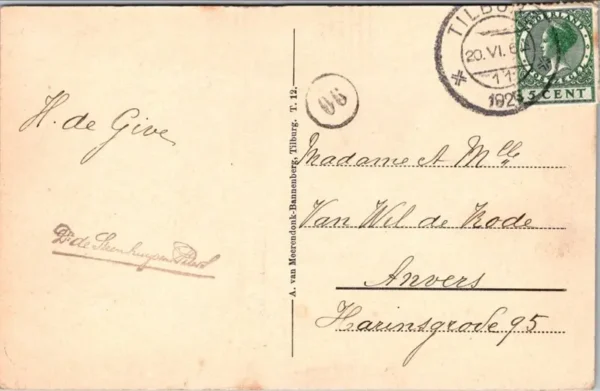 H. de Give
A. van Meerendonk-Bannenberg, Tilburg. T. 12.
90
TILBURG
20.VI.6
11
192
NEDERLAND
5 CENT
Madame et Mlle
Van Wil de Rode
Anvers
Haringrode 95